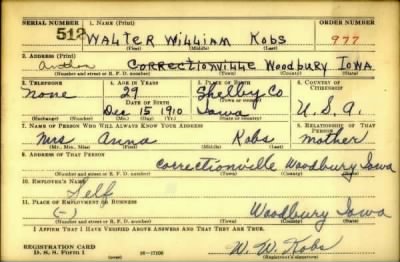 SERIAL NUMBER 1. NAME (Print) ORDER NUMBER
512 WALTER WILLIAM Kobs 977
(First) (Middle) (Last)
2. ADDRESS (Print)
Correctionville Woodbury Iowa
(Number and street or R. F. D. number) (Town) (County) (State)
3. TELEPHONE 4. AGE IN YEARS 5. PLACE OF BIRTH 6. COUNTRY OF CITIZENSHIP
None 29 Shelby Co
DATE OF BIRTH (Town or county)
Dec 15 1910 Iowa U. S. A.
(Exchange) (Number) (Mo.) (Day) (Yr.) (State or country)
7. NAME OF PERSON WHO WILL ALWAYS KNOW YOUR ADDRESS 8. RELATIONSHIP OF THAT PERSON
Mrs Anna Kobs mother
(Mr., Mrs., Miss) (First) (Middle) (Last)
9. ADDRESS OF THAT PERSON
Correctionville Woodbury Iowa
(Number and street or R. F. D. number) (Town) (County) (State)
10. EMPLOYER'S NAME
Self
11. PLACE OF EMPLOYMENT OR BUSINESS
(-) Woodbury Iowa
(Number and street or R. F. D. number) (Town) (County) (State)
I AFFIRM THAT I HAVE VERIFIED ABOVE ANSWERS AND THAT THEY ARE TRUE.
REGISTRATION CARD W. W. Kobs
D. S. S. Form 1 (Registrant's signature)